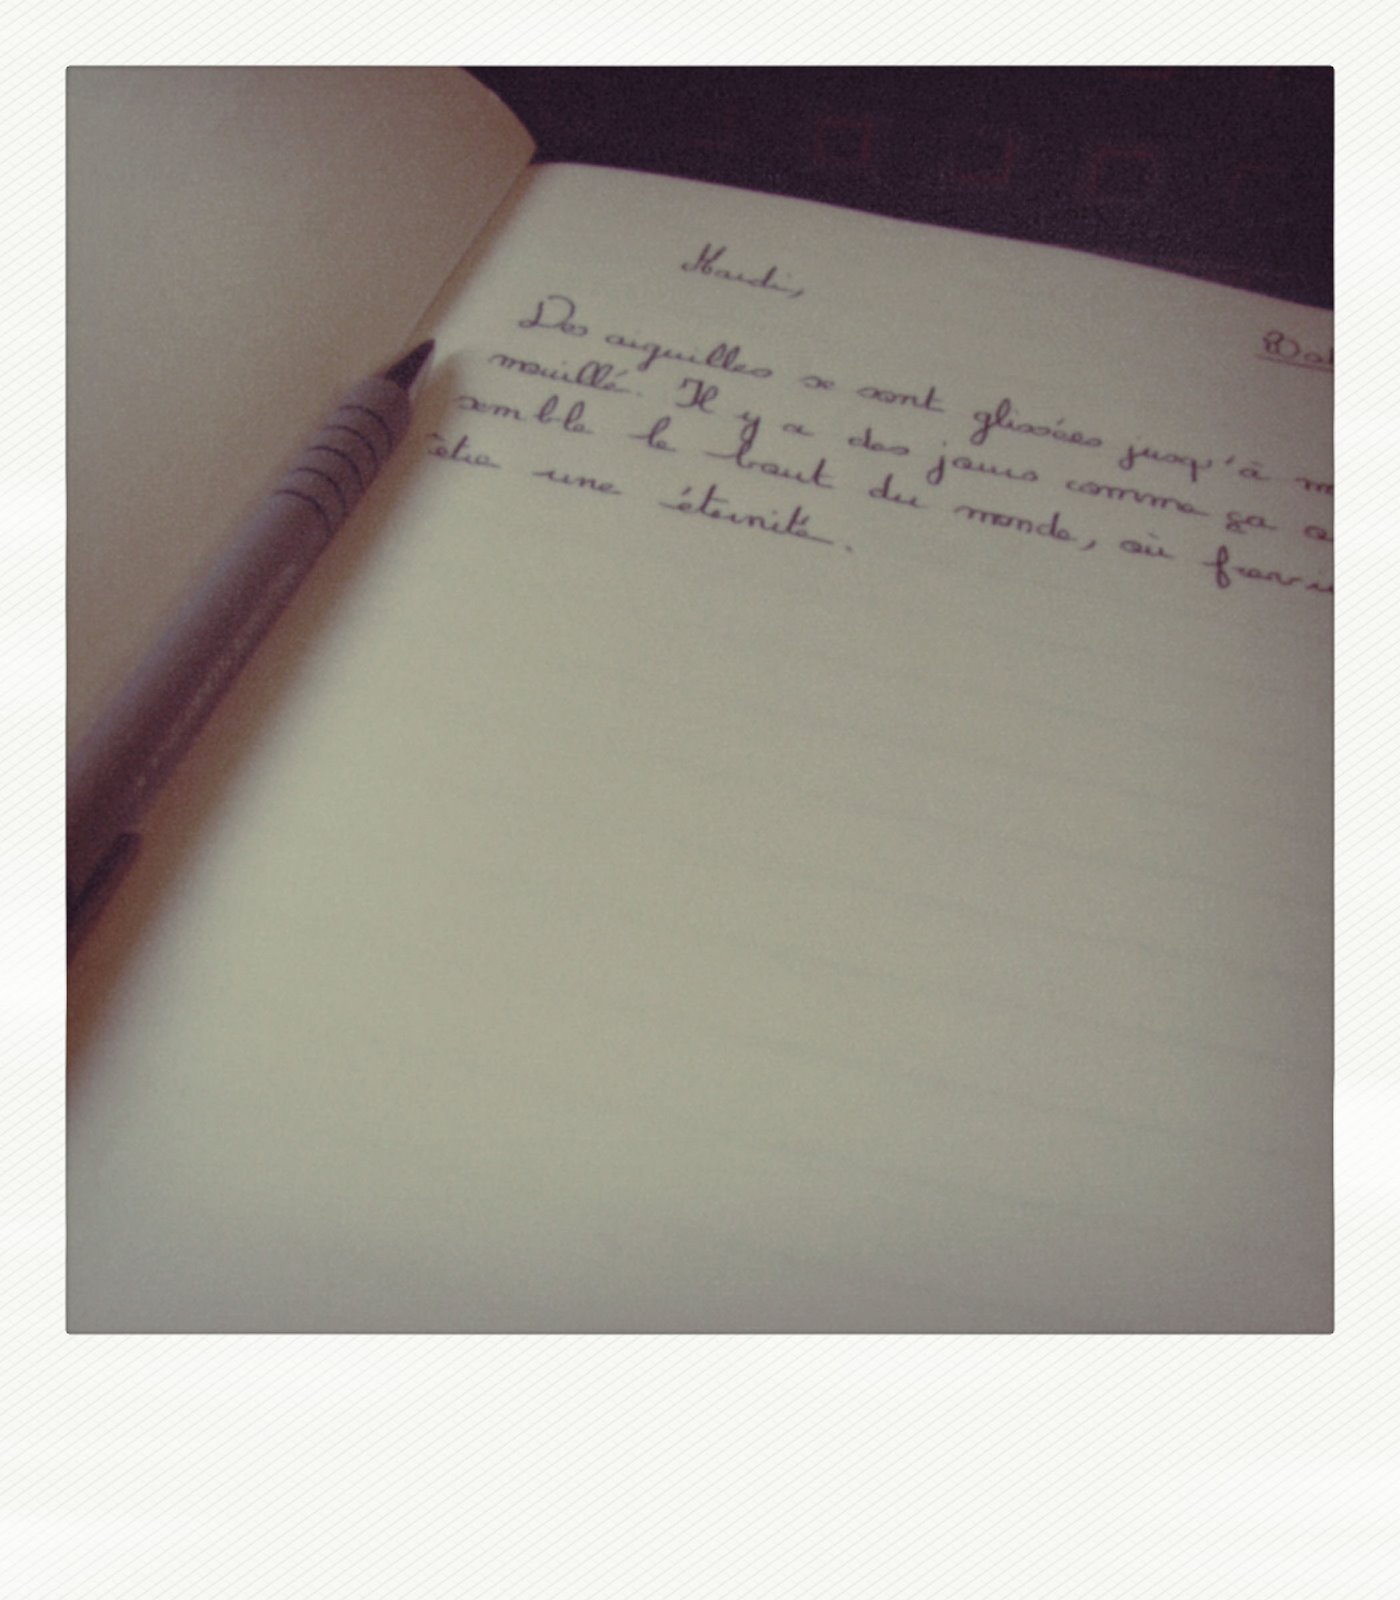 Mardi,
Des aiguilles se sont glissées jusqu'à
mouillé. Il y a des jours comme ça
semble le bout du monde, où
être une éternité.